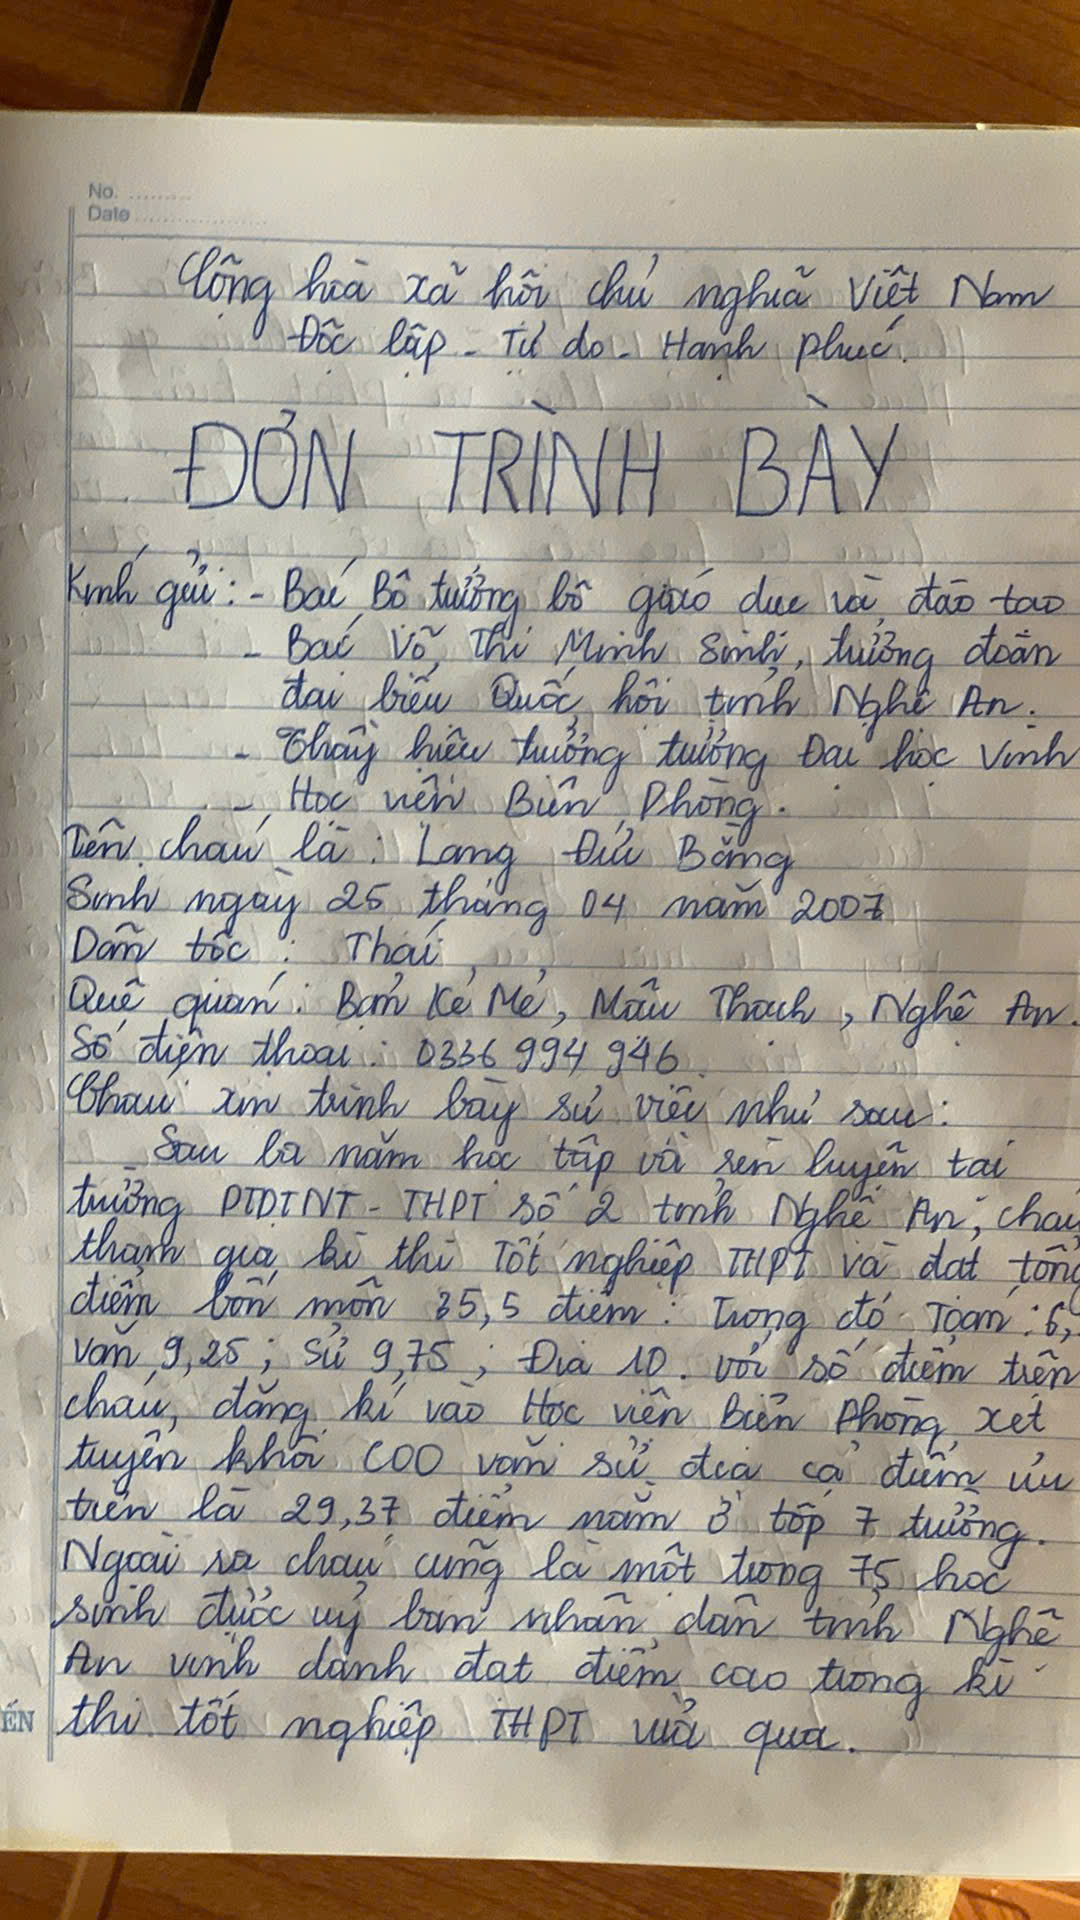 No. ..........
Date ....................
Cộng hòa xã hội chủ nghĩa Việt Nam
Độc lập - Tự do - Hạnh phúc.
ĐƠN TRÌNH BÀY
Kính gửi: - Bác Bộ trưởng bộ giáo dục và đào tạo
- Bác Võ Thị Minh Sinh, trưởng đoàn
đại biểu Quốc hội tỉnh Nghệ An.
- Thầy hiệu trưởng trường Đại học Vinh
- Học viện Biên Phòng.
Tên cháu là: Lang Đức Bằng
Sinh ngày 25 tháng 04 năm 2007
Dân tộc: Thái
Quê quán: Bản Kẻ Mẻ, Mậu Thạch, Nghệ An.
Số điện thoại: 0336 994 946.
Cháu xin trình bày sự việc như sau:
Sau ba năm học tập và rèn luyện tại
trường PTDTNT - THPT số 2 tỉnh Nghệ An, cháu
tham gia kì thi Tốt nghiệp THPT và đạt tổng
điểm bốn môn 35,5 điểm: Trong đó Toán: 6,
văn 9,25; Sử 9,75; Địa 10. Với số điểm trên
cháu, đăng kí vào Học viện Biên Phòng xét
tuyển khối C00 văn sử địa cả điểm ưu
tiên là 29,37 điểm nằm ở tốp 7 trường.
Ngoài ra cháu cũng là một trong 75 học
sinh được uỷ ban nhân dân tỉnh Nghệ
An vinh danh đạt điểm cao trong kì
thi tốt nghiệp THPT vừa qua.
ẾN